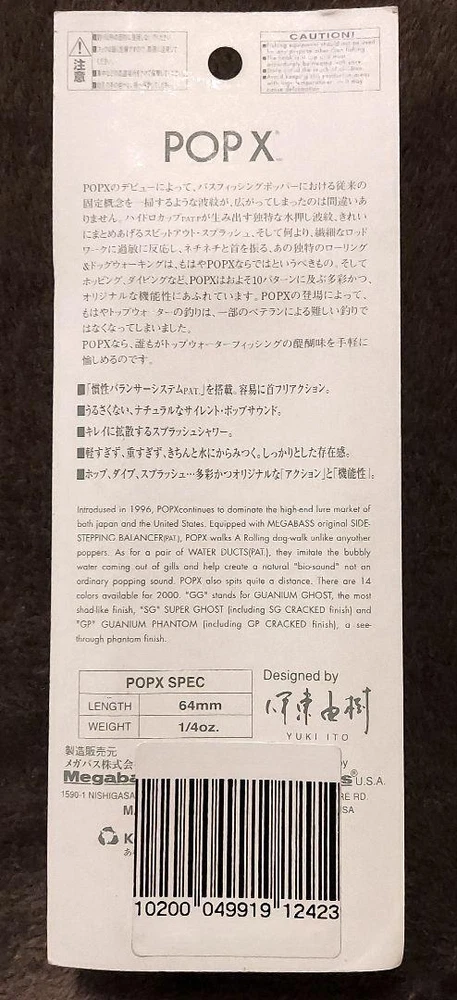 注意
CAUTION!
POP X
POPXのデビューによって、バスフィッシングポッパーにおける従来の
固定概念を一掃するような波紋が、広がってしまったのは間違いあ
りません。ハイドロカップPAT.Pが生み出す独特な水押し波紋、きれい
にまとめあげるスピットアウト・スプラッシュ、そして何より、繊細なロッド
ワークに過敏に反応し、ネチネチと首を振る、あの独特のローリング
&ドッグウォーキングは、もはやPOPXならではというべきもの。そして
ホッピング、ダイビングなど、POPXはおよそ10パターンに及ぶ多彩かつ、
オリジナルな機能性にあふれています。POPXの登場によって、
もはやトップウォーターの釣りは、一部のベテランによる難しい釣りで
はなくなってしまいました。
POPXなら、誰もがトップウォーターフィッシングの醍醐味を手軽に
愉しめるのです。
■「慣性バランサーシステムPAT.」を搭載。容易に首フリアクション。
■うるさくない、ナチュラルなサイレント・ポップサウンド。
■キレイに拡散するスプラッシュシャワー。
■軽すぎず、重すぎず、きちんと水にからみつく。しっかりとした存在感。
■ホップ、ダイブ、スプラッシュ…多彩かつオリジナルな「アクション」と「機能性」。
Introdused in 1996, POPXcontinues to dominate the high-end lure market of
both japan and the United States. Equipped with MEGABASS original SIDE-
STEPPING BALANCER(PAT.), POPX walks A Rolling dog-walk unlike anyother
poppers. As for a pair of WATER DUCTS(PAT.), they imitate the bubbly
water coming out of gills and help create a natural "bio-sound" not an
ordinary popping sound. POPX also spits quite a distance. There are 14
colors available for 2000. "GG" stands for GUANIUM GHOST, the most
shad-like finish, "SG" SUPER GHOST (including SG CRACKED finish) and
"GP" GUANIUM PHANTOM (including GP CRACKED finish), a see-
through phantom finish.
POPX SPEC
LENGTH 64mm
WEIGHT 1/4oz.
Designed by
伊東由樹
YUKI ITO
製造販売元
メガバス株式会
Megaba
U.S.A.
1590-1 NISHIGASA
RE RD.
10200 049919 12423